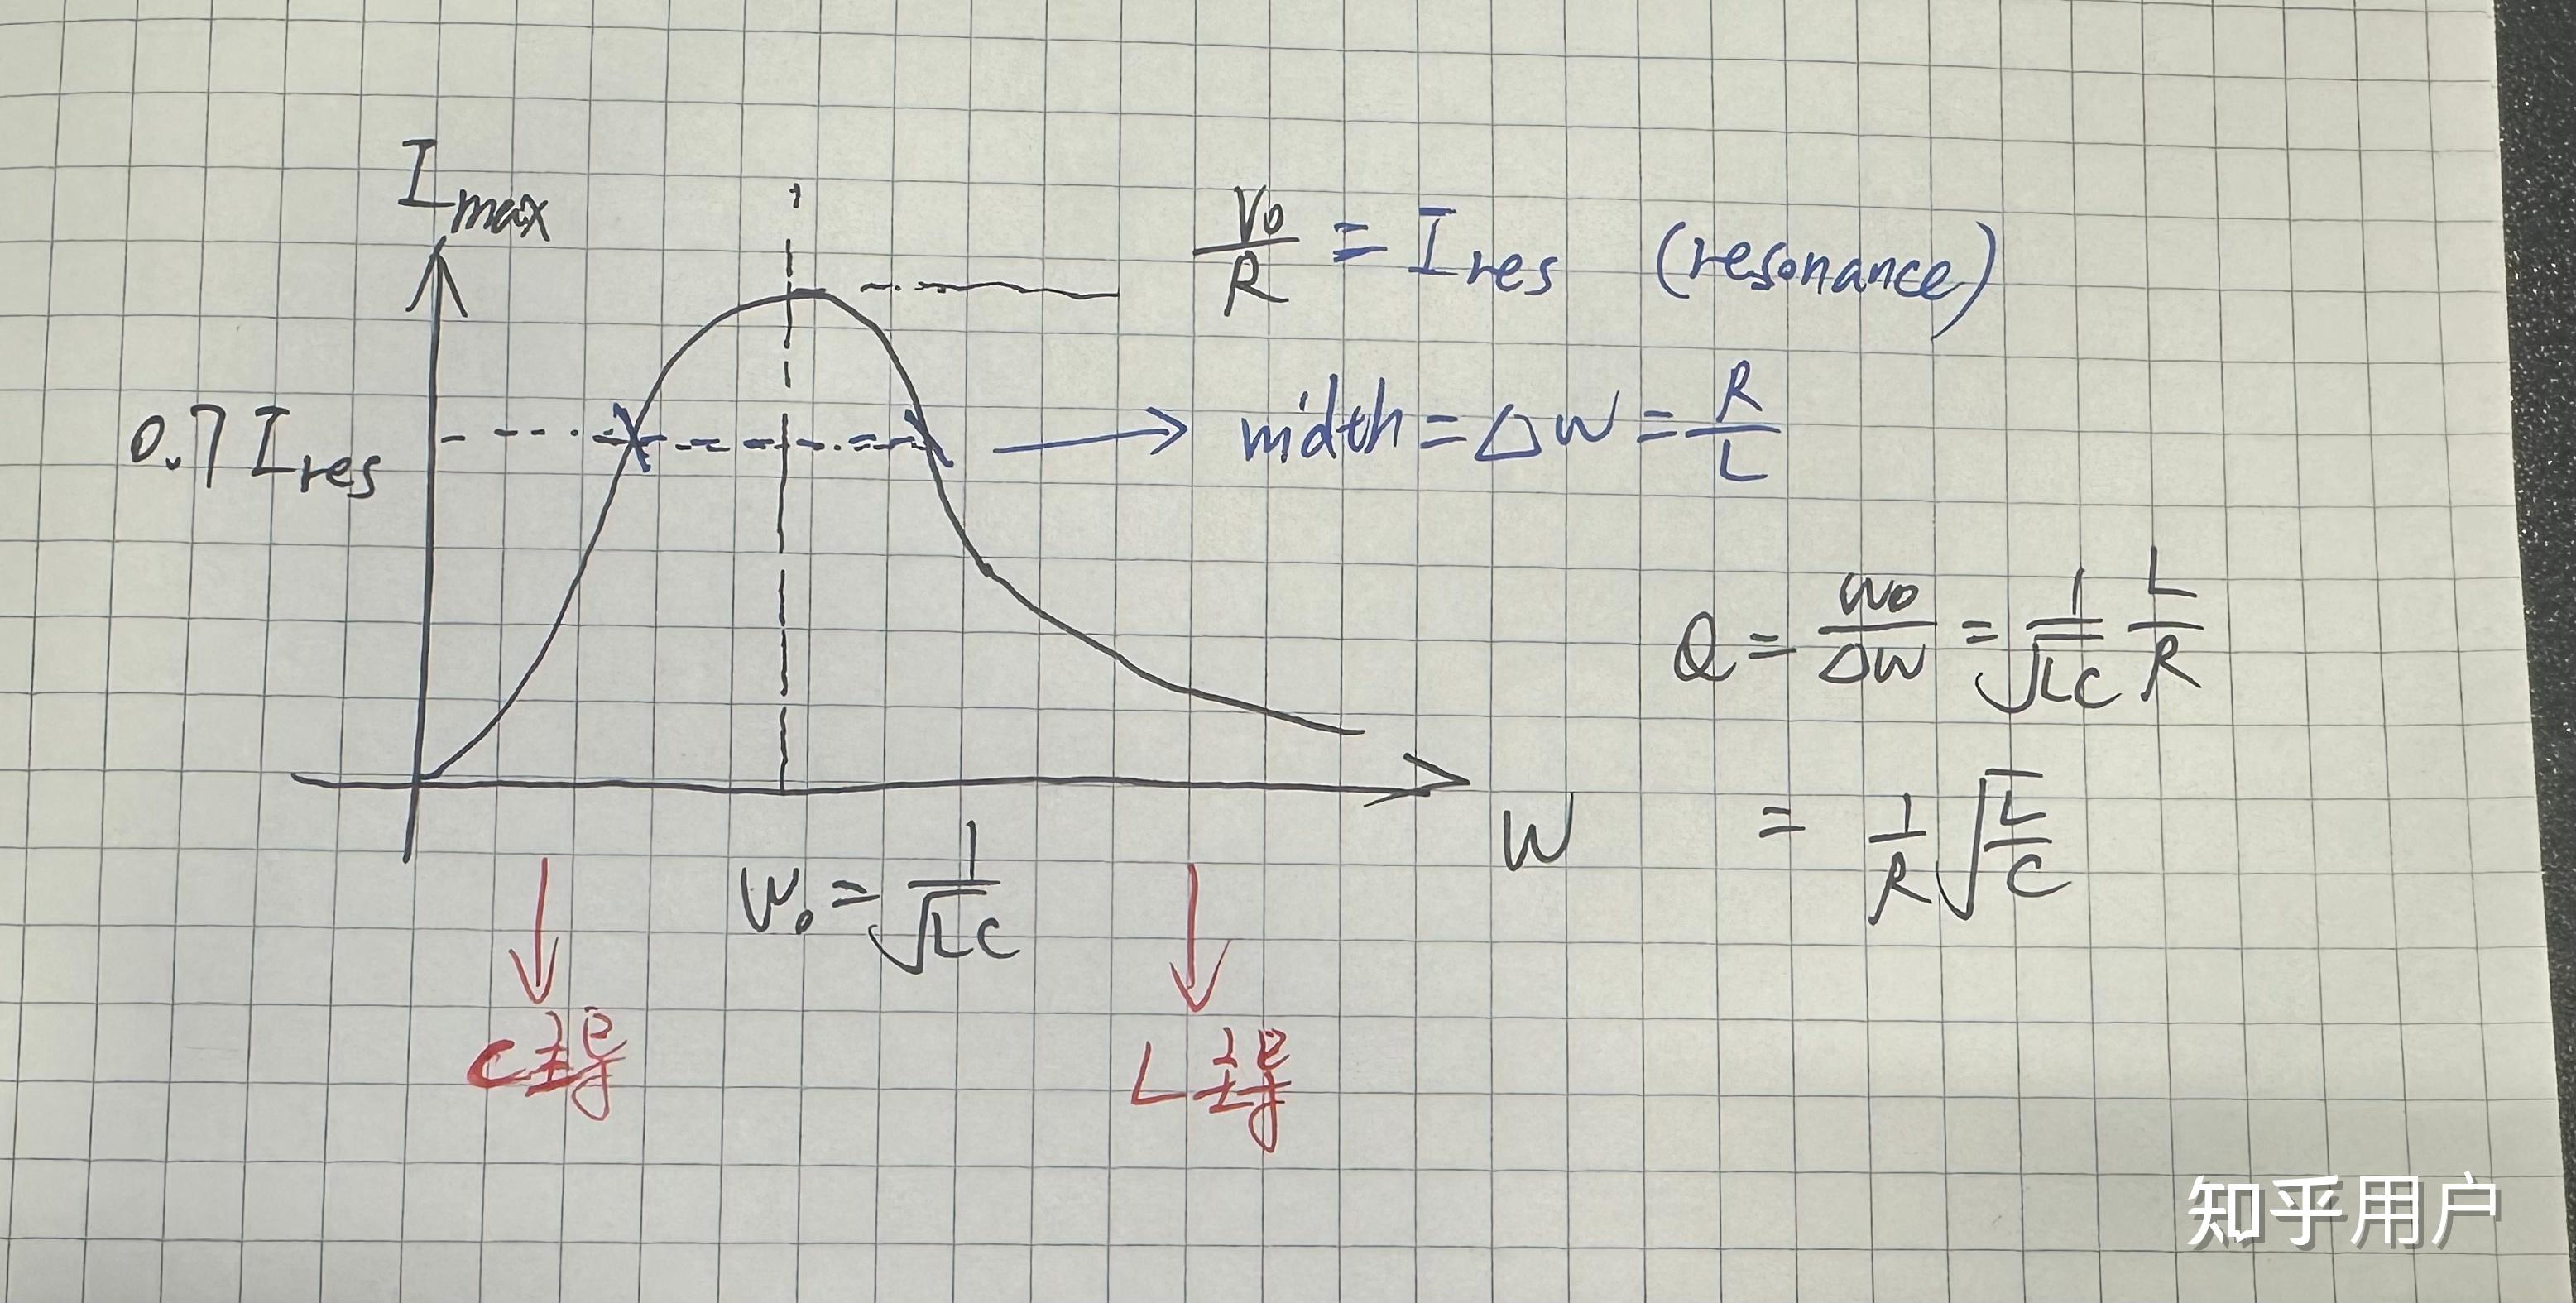 I_max
V₀/R = I_res (resonance)
0.7 I_res
width = Δω = R/L
Q = ω₀/Δω = 1/√LC L/R
= 1/R √(L/C)
ω
ω₀ = 1/√LC
C主导
L主导
知乎用户